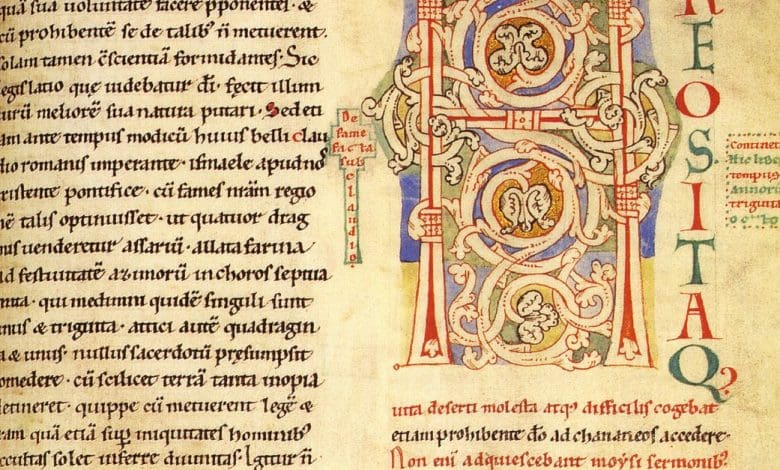 quā sua voluntate facere pponentes· &
cū prohibente se de talib; n̄ metuerent·
solam tamen c̄scientiā formidantes· Sic
legislatio quę videbatur dī· fecit illum
turū meliorē sua natura putari· Sed eti
am ante tempus modicū huius belli Clau
dio romanis imperante· ismaele apud nos
existente pontifice· cū fames nr̄am regio
nē talis optinuisset· ut quatuor drag
mis venderetur assariū· allata farina
ad festivitatē azimorū in choros septua
inta· qui medimni quidē singuli sunt
unus & triginta· attici autē quadragin
ta & unus· nullus sacerdotū pręsumpsit
omedere· cū scilicet terrā tanta inopia
detineret· quippe cū metuerent legē &
iram quā etiā sup iniquitates hominib;
occultas solet inferre divinitas· Igitur n̄
De
fame
facta
sub
claudio
H
REOSITAQ;
Continet
hic liber
tempus
annorū
triginta
uita deserti molesta atq; difficilis cogebat
etiam prohibente dō ad chananeos accedere·
Non enī adquiescebant moysi sermonib;